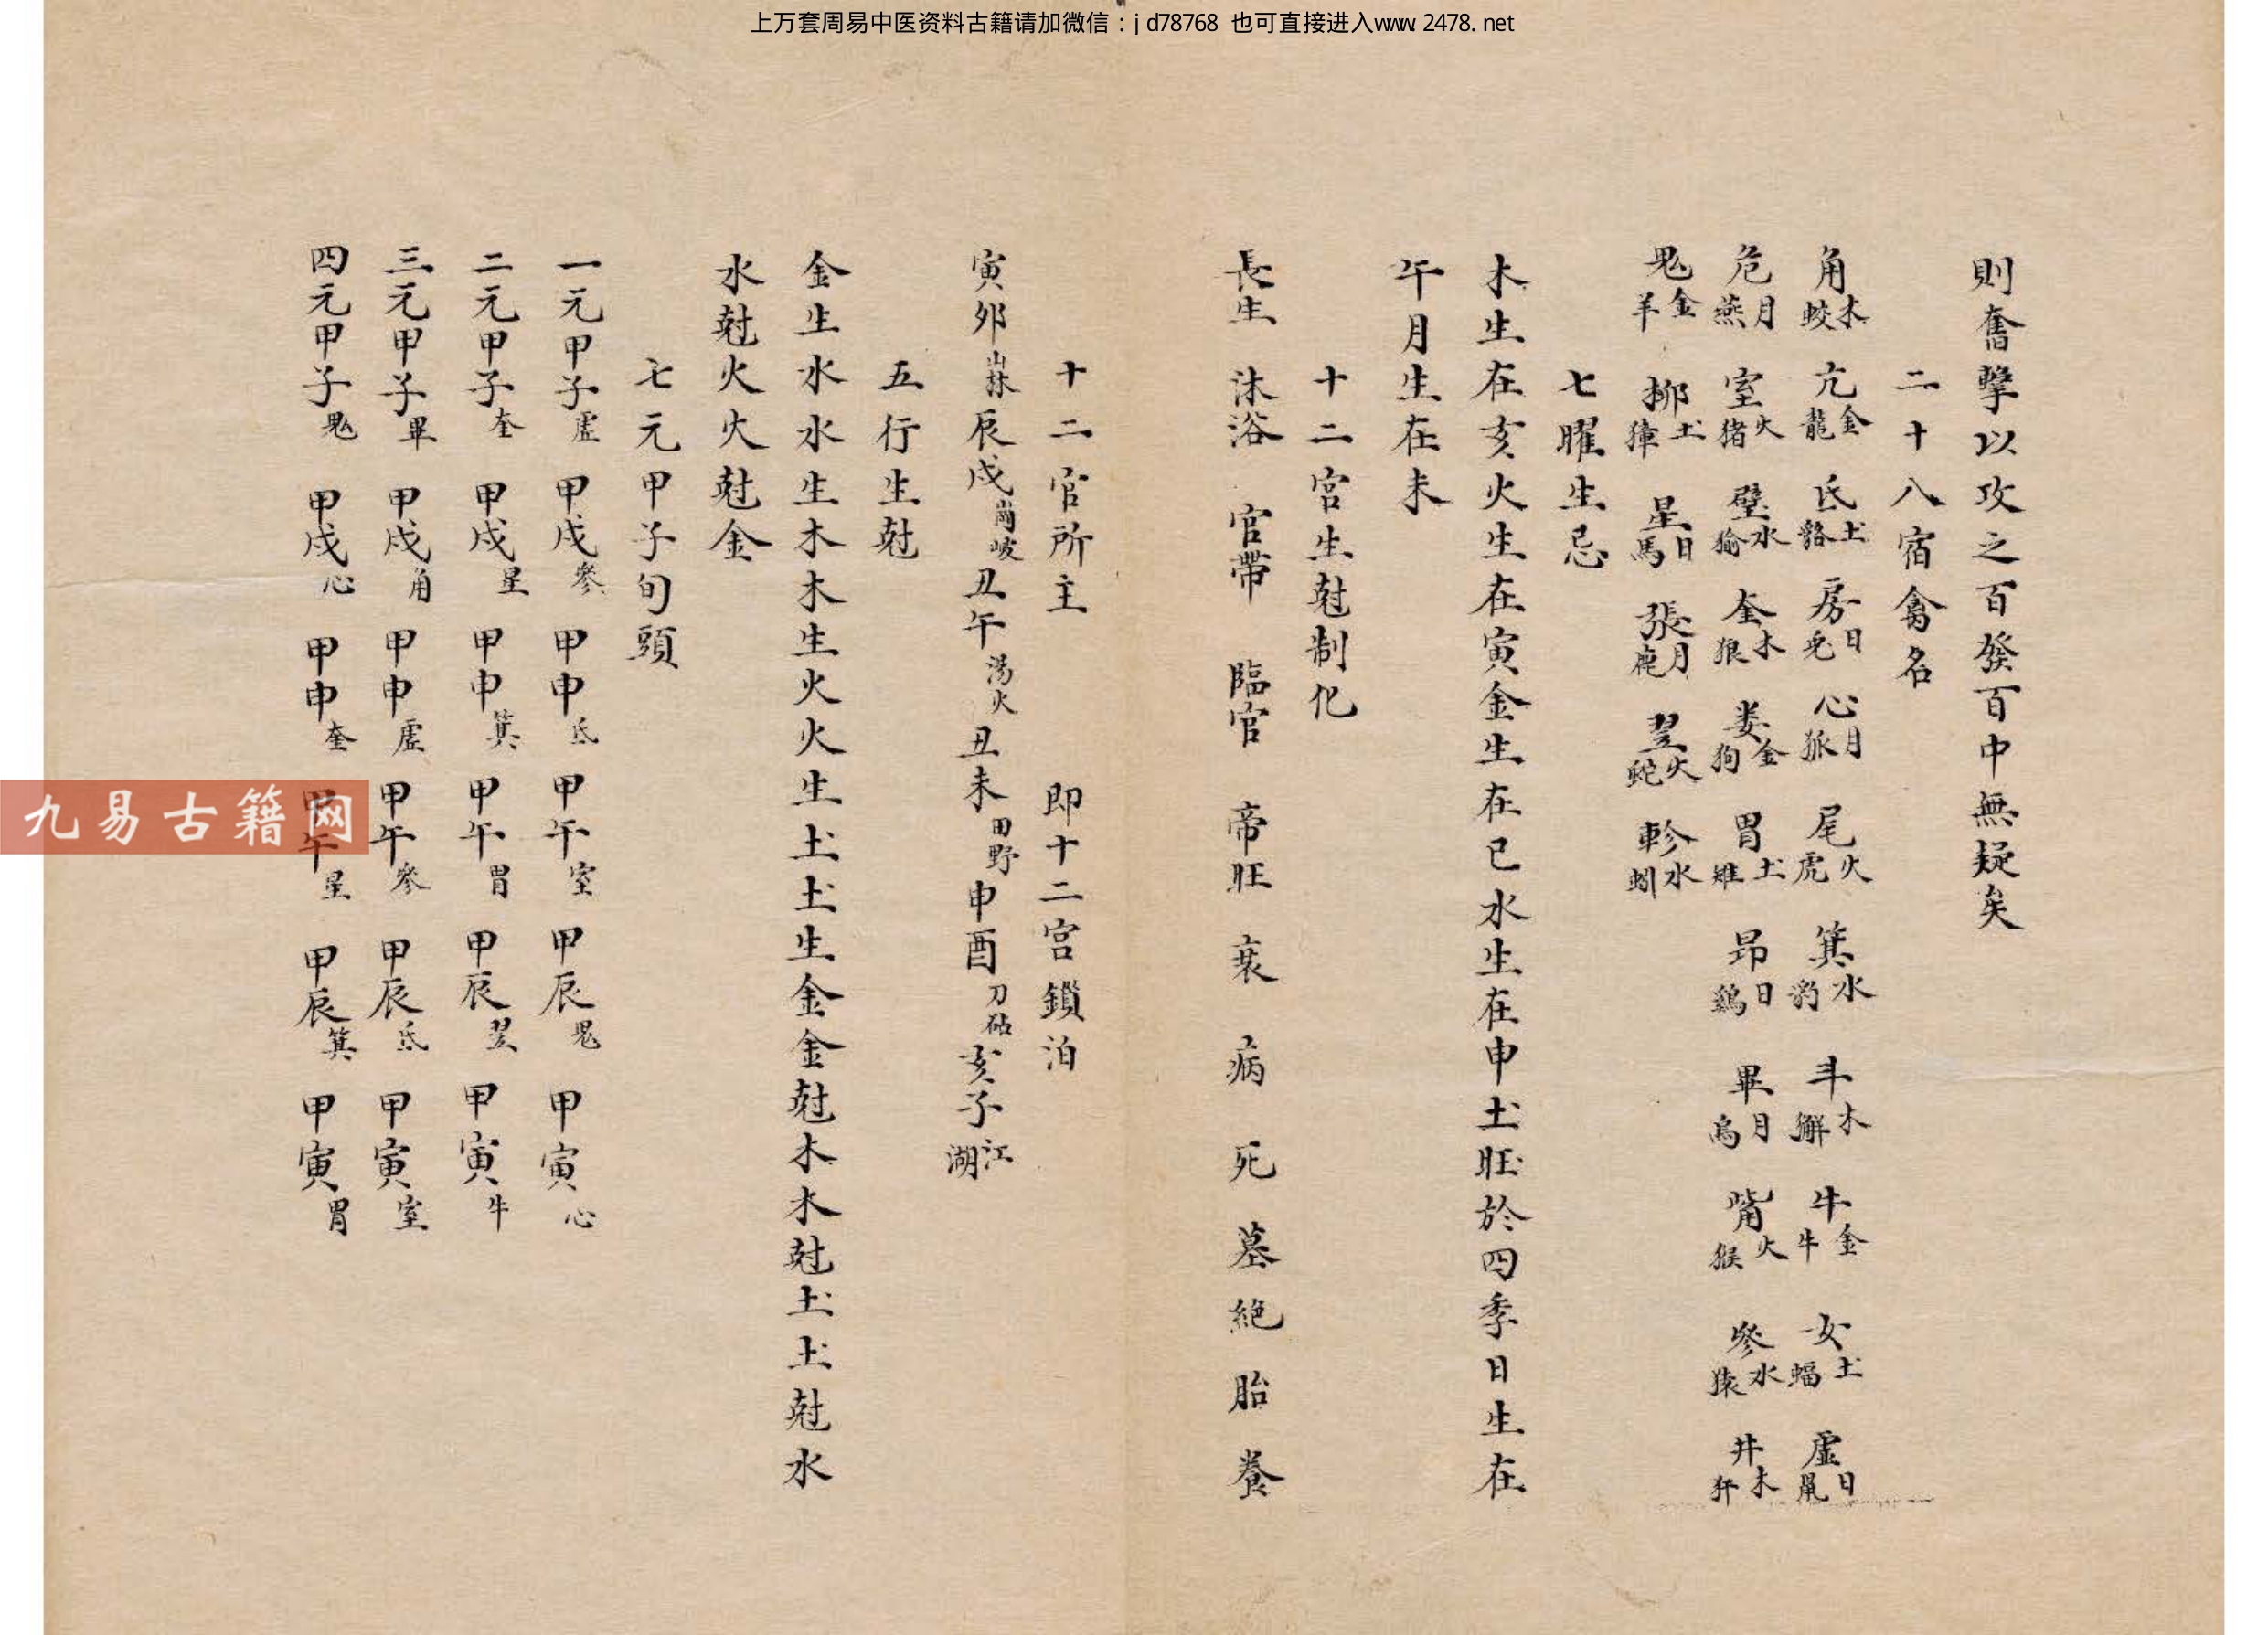 上万套周易中医资料古籍请加微信：jd78768 也可直接进入www.2478.net
則奮擊以攻之百發百中無疑矣
二十八宿禽名
角木蛟 亢金龍 氐土貉 房日兎 心月狐 尾火虎 箕水豹 斗木獬 牛金牛 女土蝠 虛日鼠
危月燕 室火猪 壁水㺄 奎木狼 娄金狗 胃土雉 昴日鷄 畢月烏 嘴火猴 參水猿 井木犴
鬼金羊 柳土獐 星日馬 張月鹿 翌火蛇 軫水蚓
七曜生忌
木生在亥火生在寅金生在巳水生在申土旺於四季日生在
午月生在未
十二宫生尅制化
長生 沐浴 官帶 臨官 帝旺 衰 病 死 墓 絕 胎 養
十二官所主 即十二宫鎖泊
寅夘山林辰戌崗岐丑午湯火丑未田野申酉刀砧亥子江湖
五行生尅
金生水水生木木生火火生土土生金金尅木木尅土土尅水
水尅火火尅金
七元甲子旬頭
一元甲子虛 甲戌參 甲申氐 甲午室 甲辰鬼 甲寅心
二元甲子奎 甲戌星 甲申箕 甲午胃 甲辰翌 甲寅牛
三元甲子畢 甲戌角 甲申虛 甲午參 甲辰氐 甲寅室
四元甲子鬼 甲戌心 甲申奎 甲午星 甲辰箕 甲寅胃
九易古籍网